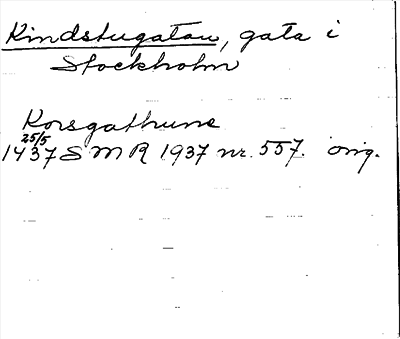 Kindstugatan, gata i
Stockholm
Korsgathune
25/5
1437 SMR 1937 nr. 557. orig.